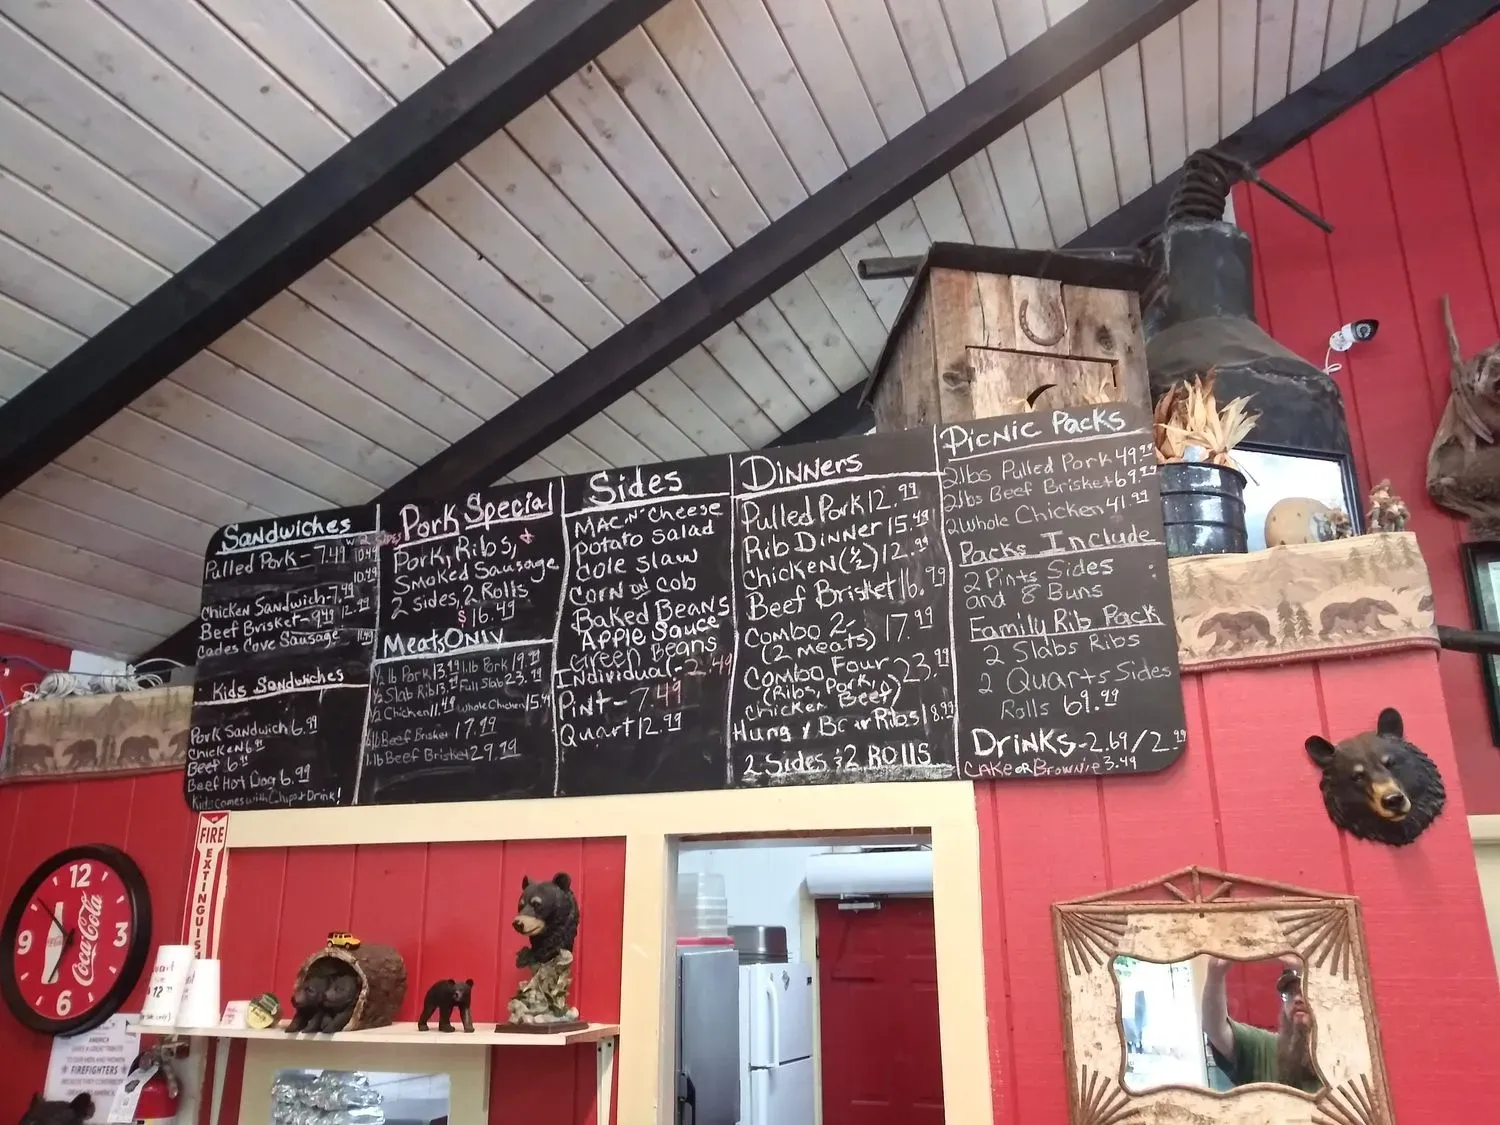 Sandwiches
w 2 Sides
Pulled Pork - 7.49 10.49
Chicken Sandwich - 7.49 10.49
Beef Brisket - 9.49 12.49
Cades Cove Sausage 11.49
Kids Sandwiches
Pork Sandwich 6.99
Chicken 6.99
Beef 6.99
Beef Hot Dog 6.99
Kids Comes with Chips + Drink!
Pork Special
Pork, Ribs, &
Smoked Sausage
2 Sides, 2 Rolls
$16.49
Meats Only
½ lb Pork 13.49 1 lb Pork 19.99
½ Slab Rib 13.99 Full Slab 23.99
½ Chicken 11.49 Whole Chicken 15.49
½ lb Beef Brisket 17.99
1 lb Beef Brisket 29.99
Sides
Mac-n-Cheese
Potato Salad
Cole Slaw
Corn on Cob
Baked Beans
Apple Sauce
Green Beans
Individual - 2.49
Pint - 7.49
Quart 12.99
Dinners
Pulled Pork 12.99
Rib Dinner 15.49
Chicken (½) 12.99
Beef Brisket 16.99
Combo 2-
(2 Meats) 17.99
Combo Four
(Ribs, Pork, 23.99
Chicken Beef)
Hungry Bear Ribs 18.99
2 Sides & 2 Rolls
Picnic Packs
2 lbs Pulled Pork 49.99
2 lbs Beef Brisket 69.99
2 Whole Chicken 41.99
Packs Include
2 Pints Sides
and 8 Buns
Family Rib Pack
2 Slabs Ribs
2 Quarts Sides
Rolls 69.99
Drinks - 2.69/2.99
Cake or Brownie 3.49
FIRE
EXTINGUIS
12
3
6
9
Coca-Cola
12
AMERICA
FIREFIGHTERS